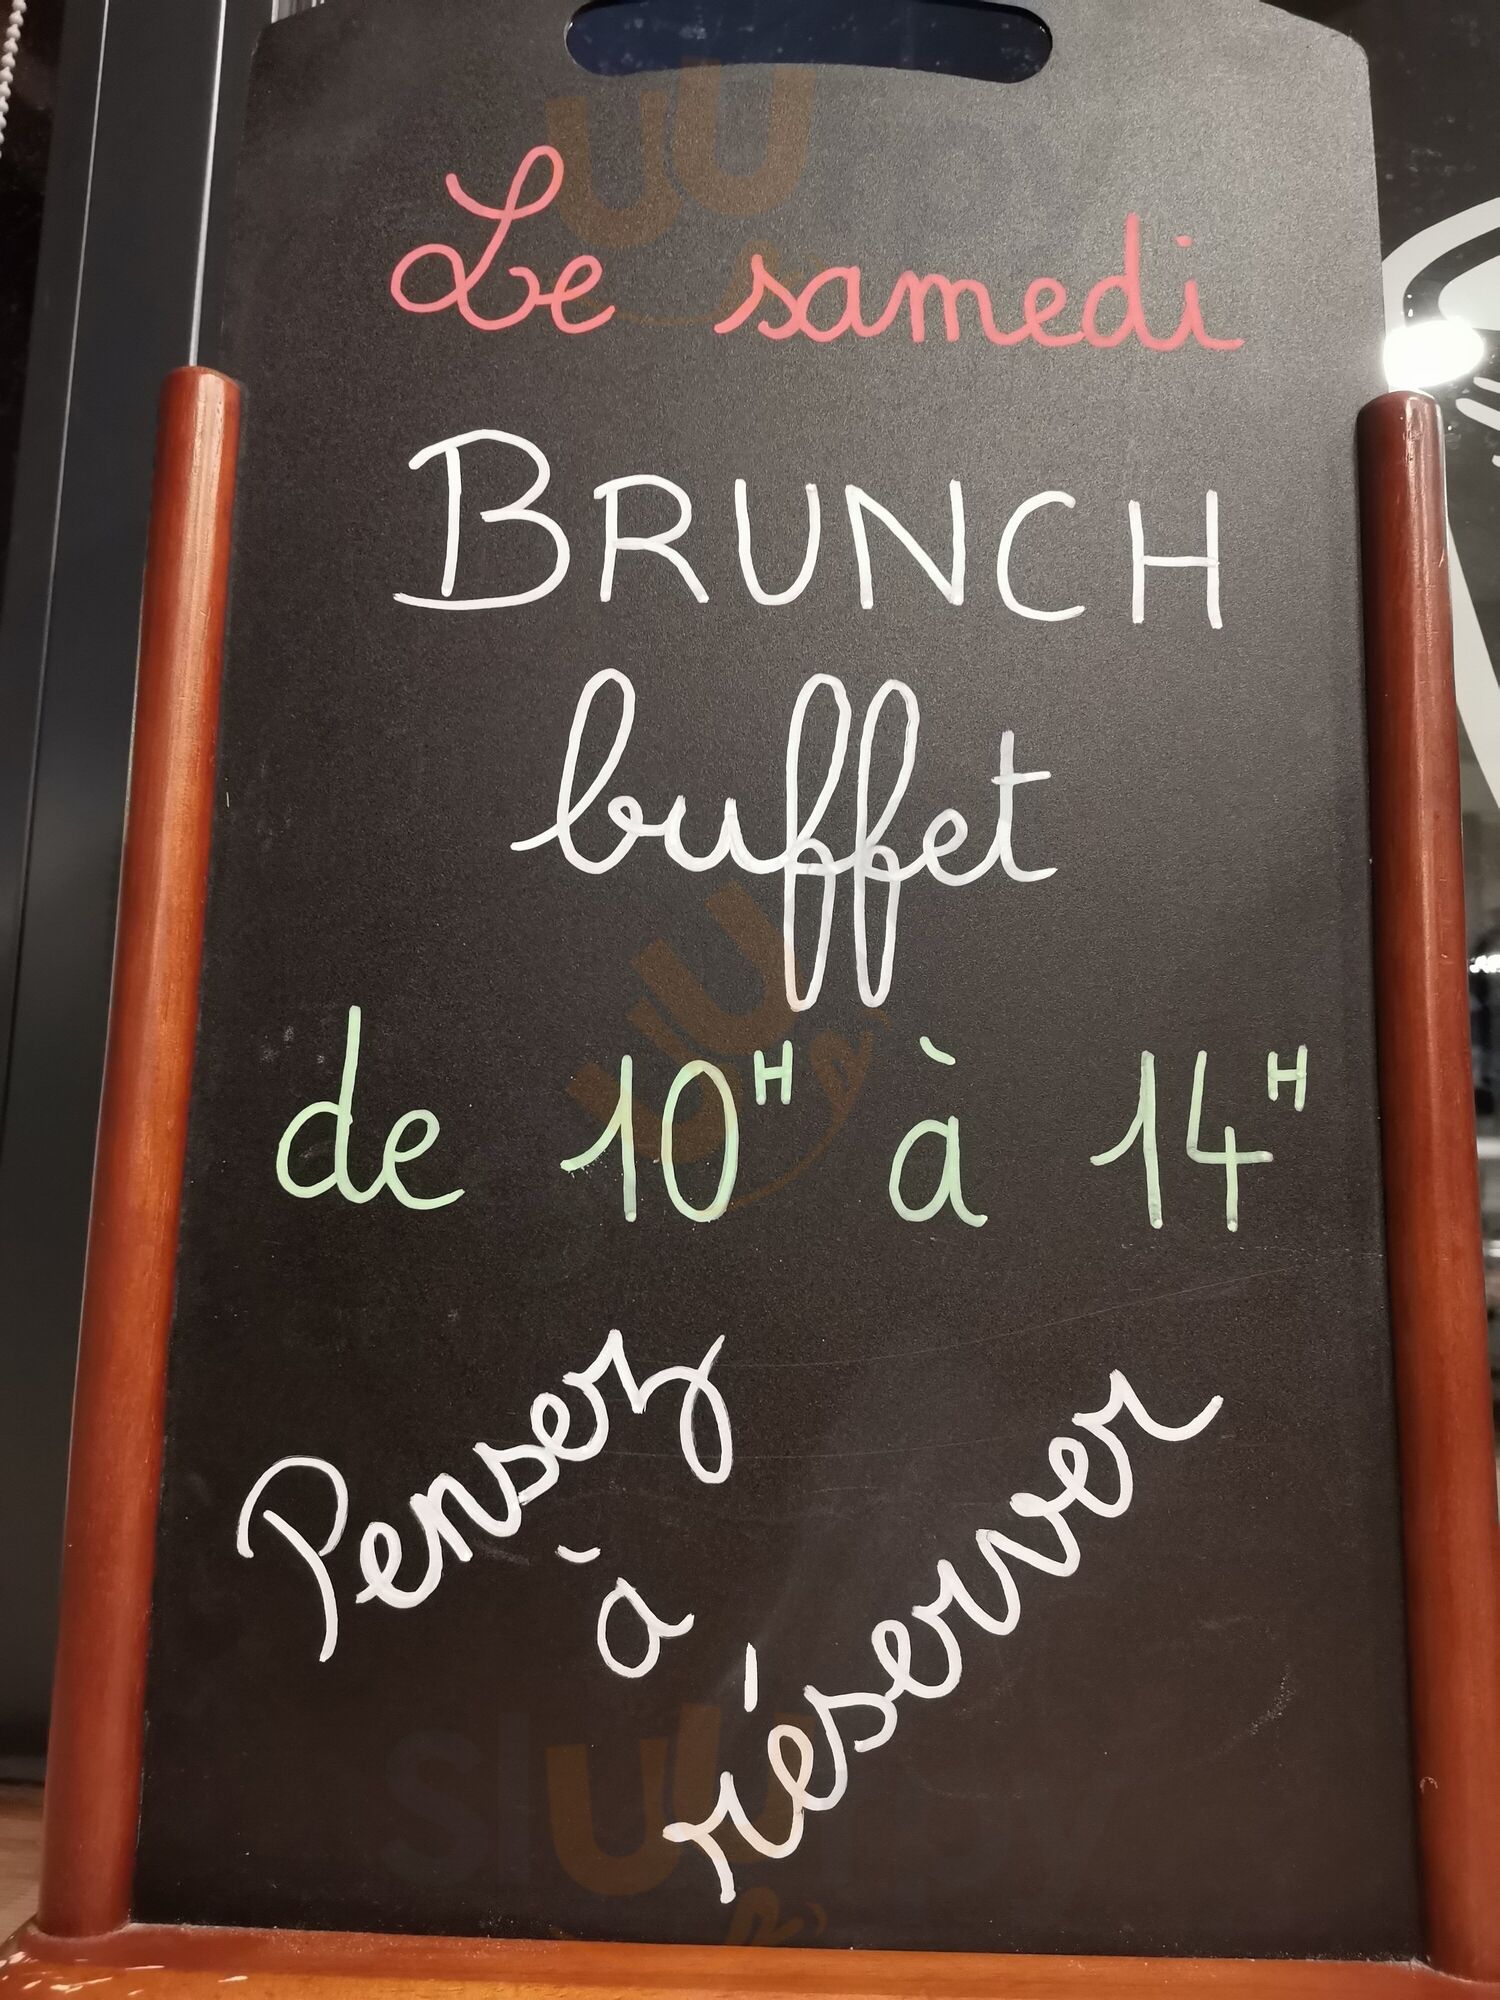 Le samedi
BRUNCH
buffet
de 10H à 14H
Pensez
à
réserver
sluurpy